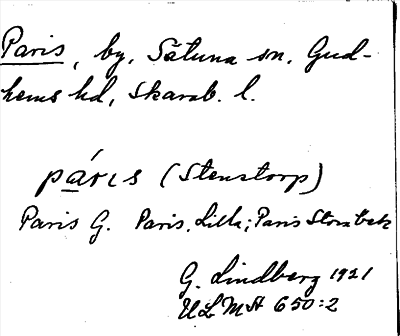 Paris, by, Sätuna sn, Gud-
hems hd, Skarab. l.
páris (Stenstorp)
Paris G. Paris, Lilla; Paris Storabak
G. Lindberg 1921
ULMA 650:2